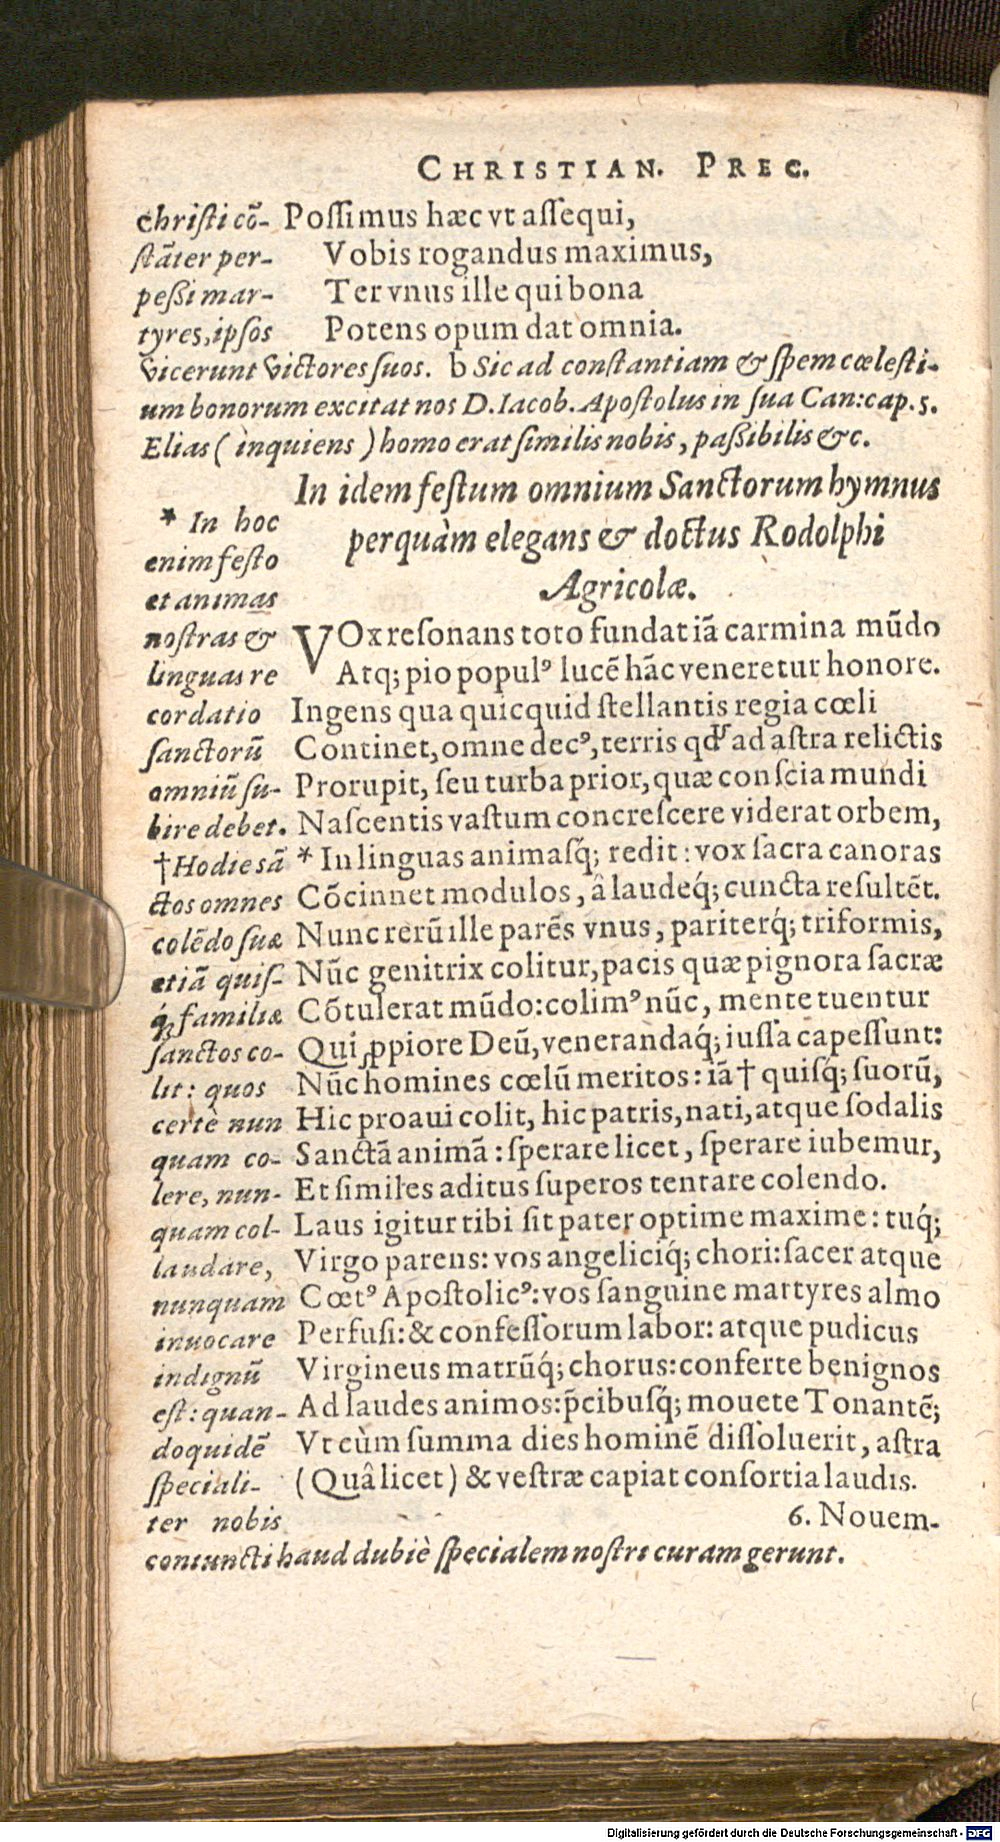 CHRISTIAN. PREC.
christi cõ-
stãter per-
peßi mar-
tyres, ipsos
Possimus hæc vt assequi,
Vobis rogandus maximus,
Ter vnus ille qui bona
Potens opum dat omnia.
vicerunt victores suos. b Sic ad constantiam & spem cœlesti-
um bonorum excitat nos D. Iacob. Apostolus in sua Can: cap. 5.
Elias (inquiens) homo erat similis nobis, paßibilis &c.
In idem festum omnium Sanctorum hymnus
perquàm elegans & doctus Rodolphi
Agricolæ.
* In hoc
enim festo
et animas
nostras &
linguas re
cordatio
sanctorũ
omniũ su-
bire debet.
† Hodie sã
ctos omnes
colẽdo suæ
etiã quis-
q́; familiæ
sanctos co-
lit: quos
certè nun
quam co-
lere, nun-
quam col-
laudare,
nunquam
inuocare
indignũ
est: quan-
doquidẽ
speciali-
ter nobis
VOx resonans toto fundat iã carmina mũdo
Atq; pio populꝰ lucẽ hãc veneretur honore.
Ingens qua quicquid stellantis regia cœli
Continet, omne decꝰ, terris qđ ad astra relictis
Prorupit, seu turba prior, quæ conscia mundi
Nascentis vastum concrescere viderat orbem,
* In linguas animasq́; redit: vox sacra canoras
Cõcinnet modulos, â laudeq́; cuncta resultẽt.
Nunc rerũ ille parẽs vnus, pariterq́; triformis,
Nũc genitrix colitur, pacis quæ pignora sacræ
Cõtulerat mũdo: colimꝰ nũc, mente tuentur
Qui ꝓpiore Deũ, venerandaq́; iussa capessunt:
Nũc homines cœlũ meritos: iã † quisq́; suorũ,
Hic proaui colit, hic patris, nati, atque sodalis
Sanctã animã: sperare licet, sperare iubemur,
Et similes aditus superos tentare colendo.
Laus igitur tibi sit pater optime maxime: tuq́;
Virgo parens: vos angeliciq́; chori: sacer atque
Cœtꝰ Apostolicꝰ: vos sanguine martyres almo
Perfusi: & confessorum labor: atque pudicus
Virgineus matrũq́; chorus: conferte benignos
Ad laudes animos: p̃cibusq́; mouete Tonantẽ;
Vt cùm summa dies hominẽ dissoluerit, astra
(Quâ licet) & vestræ capiat consortia laudis.
6. Nouem-
coniuncti haud dubiè specialem nostri curam gerunt.
Digitalisierung gefördert durch die Deutsche Forschungsgemeinschaft - DFG